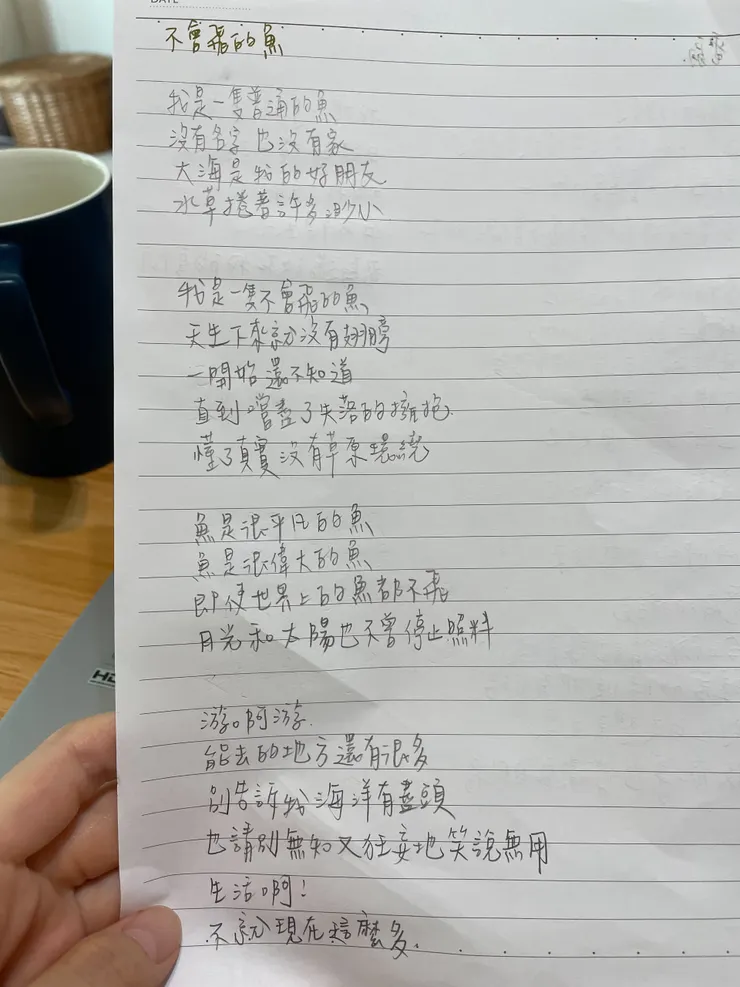 DATE
不會飛的魚
我是一隻普通的魚
沒有名字 也沒有家
大海是我的好朋友
水草捲著許多渺小
我是一隻不會飛的魚
天生下來就沒有翅膀
一開始還不知道
直到嚐盡了失落的擁抱.
懂了真實沒有草原環繞
魚是很平凡的魚
魚是很偉大的魚
即使世界上的魚都不飛
月光和太陽也不曾停止照料
游啊游.
能去的地方還有很多
別告訴我海洋有盡頭
也請別無知又狂妄地笑說無用
生活啊!
不就現在這麼多.